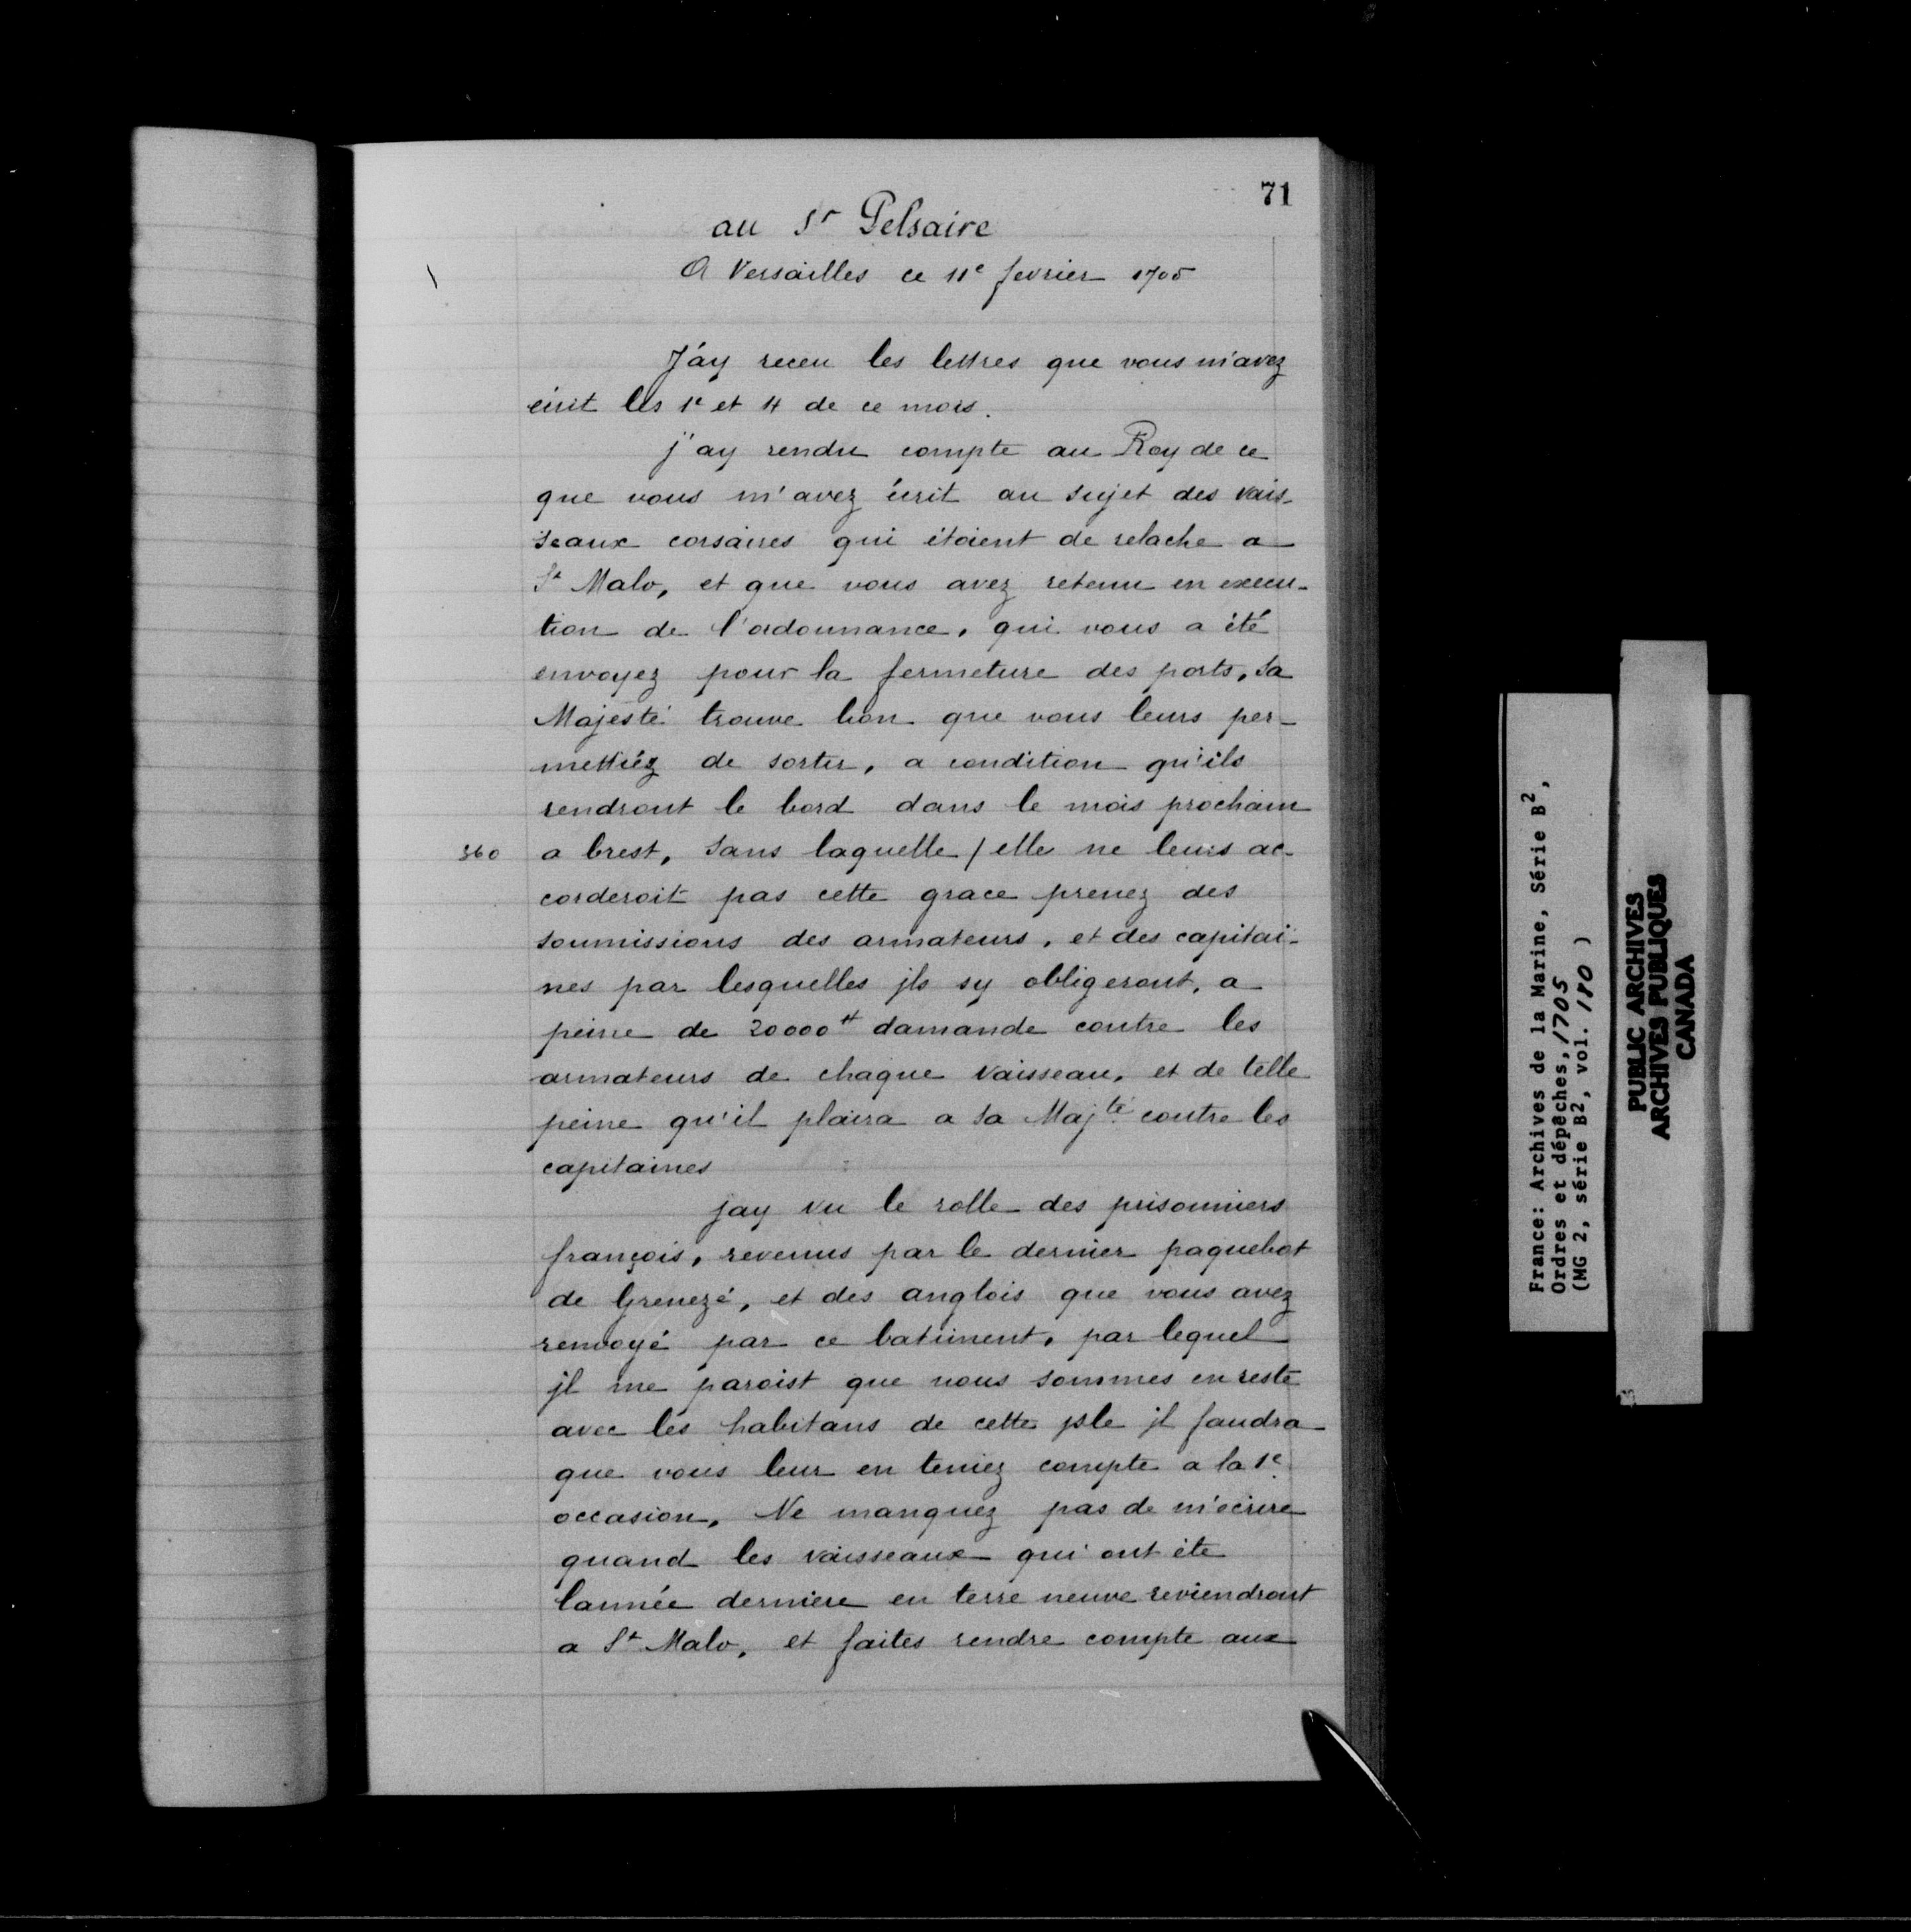 71
au Sr Pelsaire
A Versailles ce 11e fevrier 1705
J'ay receu les lettres que vous m'avez
écrit les 1e et 4 de ce mois.
j'ay rendu compte au Roy de ce
que vous m'avez écrit au sujet des vais-
seaux corsaires qui étoient de relache a
St Malo, et que vous avez retenu en execu-
tion de l'ordonnance, qui vous a été
envoyez pour la fermeture des ports, Sa
Majesté trouve bon que vous leurs per-
mettiéz de sortir, a condition qu'ils
rendront le bord dans le mois prochain
360 a brest, Sans laquelle / elle ne leurs ac-
corderoit pas cette grace prenez des
soumissions des armateurs, et des capitai-
nes par lesquelles jls sy obligeront, a
peine de 20000tt damande contre les
armateurs de chaque vaisseau, et de telle
peine qu'il plaira a Sa Majté contre les
capitaines
jay vu le rolle des prisonniers
françois, revenus par le dernier paquebot
de Grenezé, et des anglois que vous avez
renvoyé par ce batiment, par lequel
jl me paroist que nous sommes en reste
avec les habitans de cette jsle jl faudra
que vous leur en teniez compte a la 1e
occasion, Ne manquez pas de m'ecrire
quand les vaisseaux qui ont éte
lannée derniere en terre neuve reviendront
a St Malo, et faites rendre compte aux
France: Archives de la Marine, Série B2,
Ordres et dépêches, 1705
(MG 2, série B2, vol. 180 )
PUBLIC ARCHIVES
ARCHIVES PUBLIQUES
CANADA